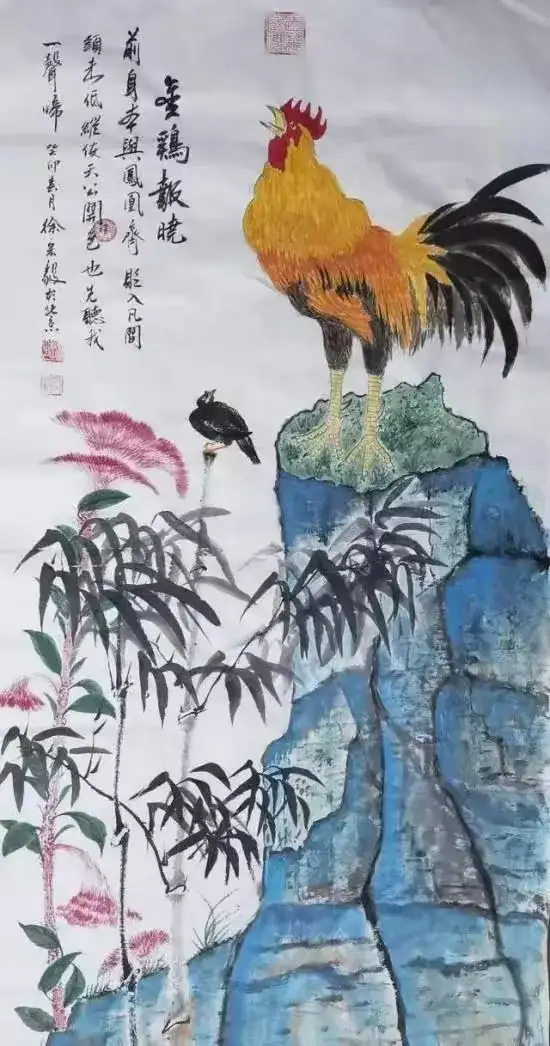 金鷄報曉
前身本與鳳凰齊貶入凡間
頭未低縱使天公開色也先聽我
一聲啼 癸卯春月徐毅於北京